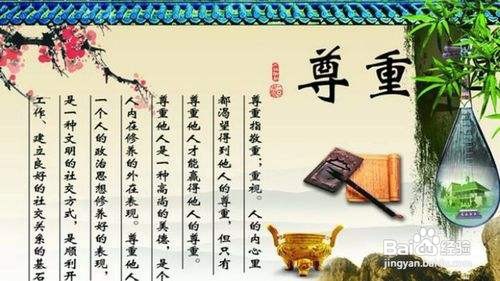 尊重
尊重指敬重；重视。人的内心里
都渴望得到他人的尊重，但只有
尊重他人才能赢得他人的尊重。
尊重他人是一种高尚的美德，是个
人内在修养的外在表现。尊重他人
一个人的政治思想修养好的表现，
是一种文明的社交方式，是顺利开
工作、建立良好的社交关系的基石
Baidu经验
jingyan.baidu.com